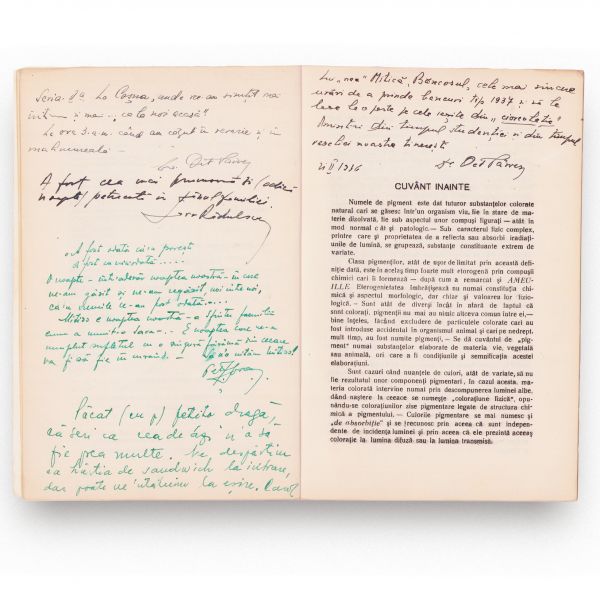 Seria 8ª La Coşna, unde ne-am simţit mai
întâi şi mai .. "ca la noi acasă".
La ora 3 a.m. când am căzut în reverie şi în
A fost cea mai frumoasă zi (adică
noapte) petrecută în sânul familiei.
"A fost odată ca-n poveşti
A fost ca niciodată....
O noapte - într'adevăr noaptea noastră - în care
ne-am găsit şi ne-am regăsit noi între noi,
ca-n vremile ce-au fost odată....
noaptea noastră - a sfintei familii
cum a numit-o Sara - . E noaptea care ne-a
umplut sufletul cu o
va şi să fie în
Păcat (cu p) fetiţo dragă,
că seri ca cea de azi n'a să
fie prea multe. Ne despărţim
ca hârtia de sandwich la intrare,
dar poate ne 'ntâlnim la eşire. Carol
Lu "nea" Mitică, Boncosul, cele mai sincere
urări de a prinde bancuri tip 1937 şi să le
lase la o parte pe cele ieşite din "
Amintiri din timpul studenţiei şi din timpul
vesel a noastre tinereţi
21 II 1936
CUVÂNT INAINTE
Numele de pigment este dat tuturor substanţelor colorate
natural cari se găsesc într'un organism viu, fie în stare de mate-
rie dizolvată, fie sub aspectul unor compuşi figuraţi — atât în
mod normal cât şi patologic.— Sub caracterul fizic complex,
printre care şi proprietatea de a reflecta sau absorbi iradiaţiu-
nile de lumină, se grupează, substanţe constituante extrem de
variate.
Clasa pigmenţilor, atât de uşor de limitat prin această
definiţie dată, este în acelaş timp foarte mult etorogenă prin compuşii
chimici cari îi formează — după cum a remarcat şi AMEU-
ILLE. Eterogenietatea îmbrăţişează nu numai constituţia chi-
mică şi aspectul morfologic, dar chiar şi valoarea lor fiziolo-
gică.— Sunt atât de diverşi încât în afară de faptul că
sunt coloraţi, pigmenţii nu mai au nimic altceva comun între ei,—
bine înţeles, făcând excludere de particulele colorate cari au
fost introduse accidental în organism şi cari pe nedrept,
mult timp, au fost numite pigmenţi, — Se dă cuvântul de „pig-
ment" numai substanţelor elaborate de materia vie, vegetală
sau animală, ori care a fi condiţiunile şi semnificaţia acestei
elaboraţiuni.
Sunt cazuri când nuanţele de culori, atât de variate, să nu
fie rezultatul unor componenţi pigmentari, în cazul acesta, ma-
teria colorată intervine numai prin descompunerea luminei albe,
dând naştere la ceeace se numeşte „coloraţiune fizică", opu-
nându-se coloraţiunilor zise pigmentare legate de structura chi-
mică a pigmentului. — Culorile pigmentare se mai numesc şi
„de absorbţie" — şi se recunosc prin aceea că sunt indepen-
dente de incidenţa luminei şi prin aceea că ele prezintă aceeaş
coloraţie la lumina difuză sau la lumina transmisă.